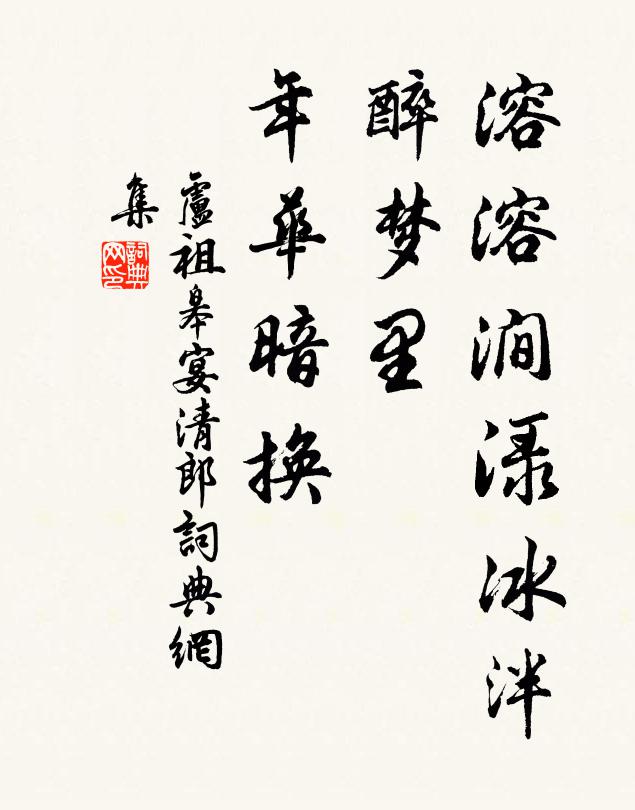 溶溶澗渌冰泮
醉梦里
年華暗換
盧祖皋宴清郎詞典網
集
詞典網印